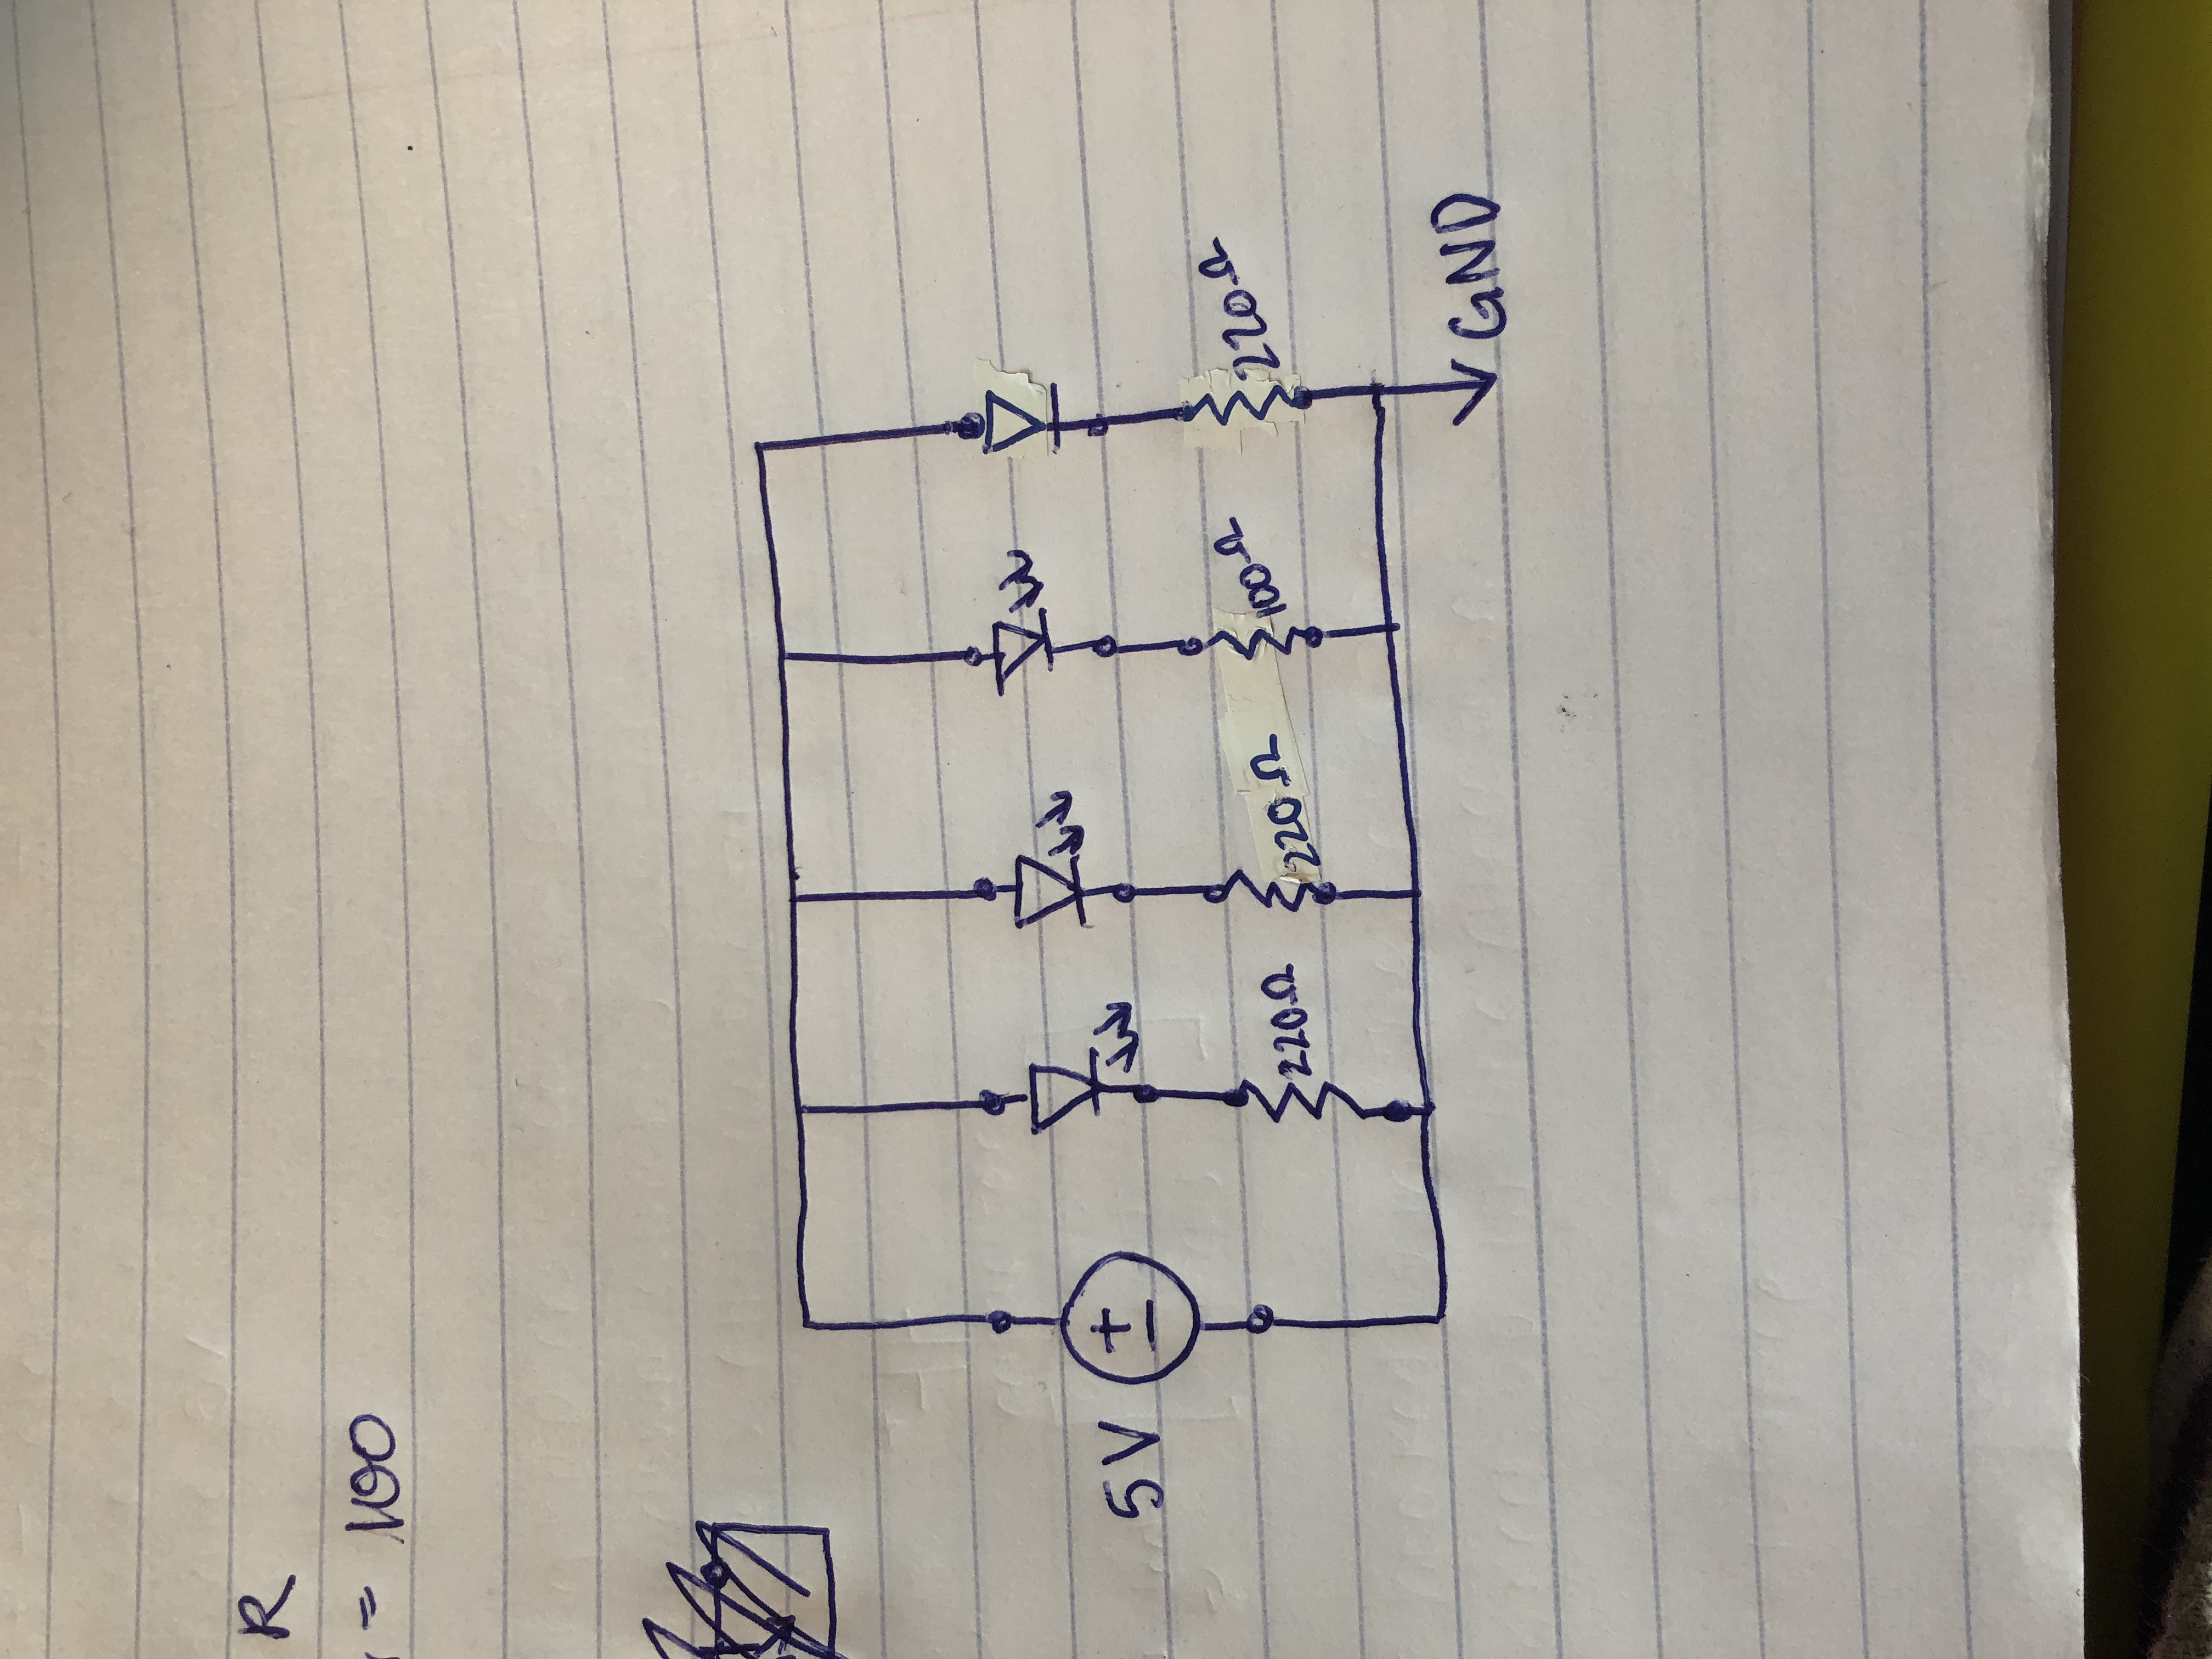 R
= 100
5V
+
−
220Ω
220Ω
100Ω
220Ω
GND